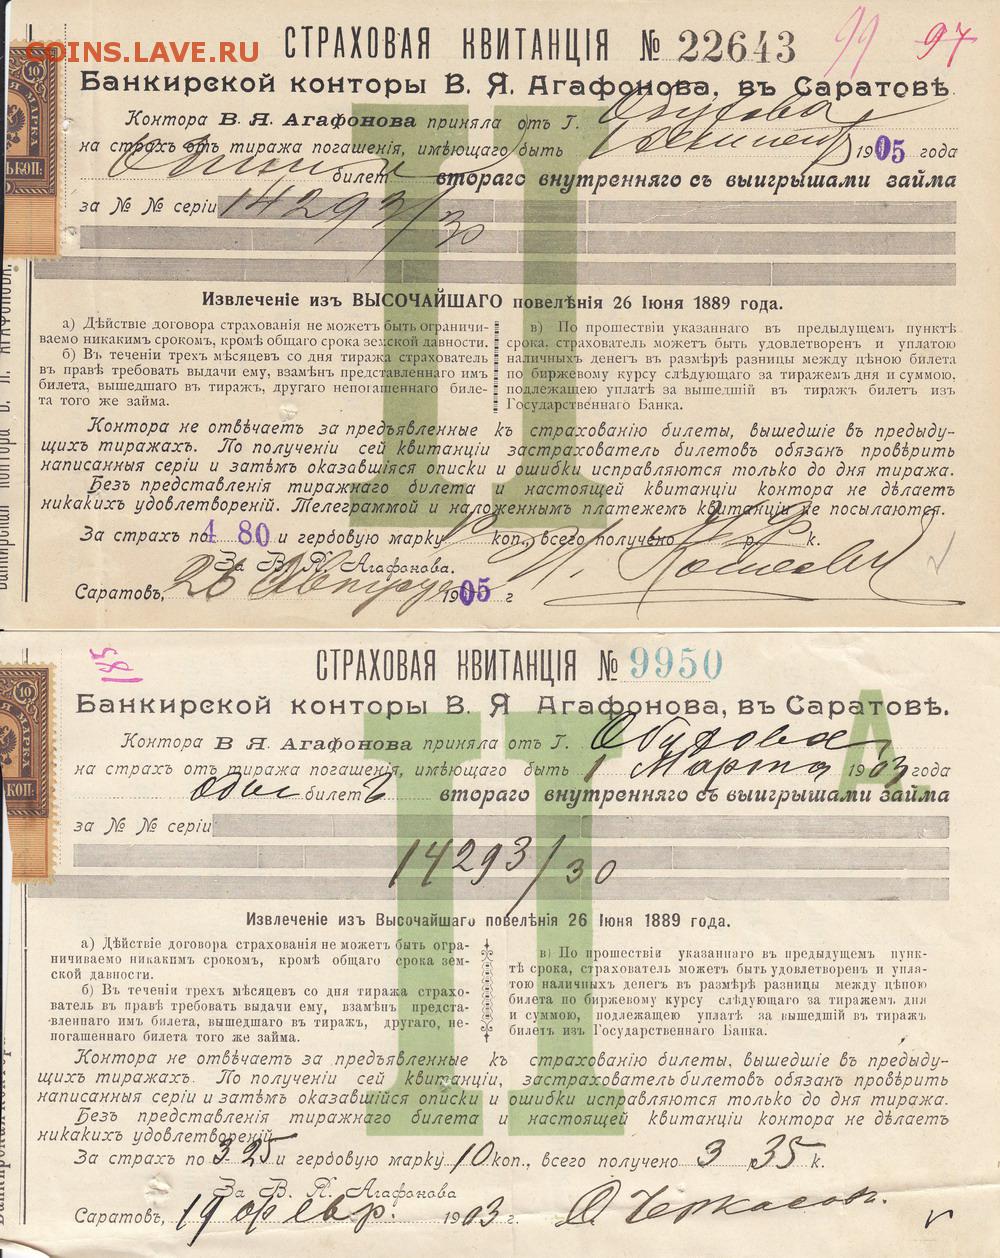 COINS.LAVE.RU
СТРАХОВАЯ КВИТАНЦІЯ № 22643
99 97
Банкирской конторы В. Я. Агафонова, въ Саратовѣ.
Контора В. Я. Агафонова приняла отъ Г. Обухова
на страхъ отъ тиража погашенія, имѣющаго быть 1 Сентября 1905 года
Одинъ билет втораго внутренняго съ выигрышами займа
за № № серіи 14293/30
Извлеченіе изъ ВЫСОЧАЙШАГО повелѣнія 26 Іюня 1889 года.
а) Дѣйствіе договора страхованія не можетъ быть ограничи-
ваемо никакимъ срокомъ, кромѣ общаго срока земской давности.
б) Въ теченіи трехъ мѣсяцевъ со дня тиража страхователь
въ правѣ требовать выдачи ему, взамѣнъ представленнаго имъ
билета, вышедшаго въ тиражъ, другаго непогашеннаго биле-
та того же займа.
в) По прошествіи указаннаго въ предыдущемъ пунктѣ
срока, страхователь можетъ быть удовлетворенъ и уплатою
наличныхъ денегъ въ размѣрѣ разницы между цѣною билета
по биржевому курсу слѣдующаго за тиражемъ дня и суммою,
подлежащею уплатѣ за вышедшій въ тиражъ билетъ изъ
Государственнаго Банка.
Контора не отвѣчаетъ за предъявленные къ страхованію билеты, вышедшіе въ предыду-
щихъ тиражахъ. По полученіи сей квитанціи застрахователь билетовъ обязанъ провѣрить
написанныя серіи и затѣмъ оказавшіяся описки и ошибки исправляются только до дня тиража.
Безъ представленія тиражнаго билета и настоящей квитанціи контора не дѣлаетъ
никакихъ удовлетвореній. Телеграммой и наложеннымъ платежемъ квитанціи не посылаются.
За страхъ по 4 80 и гербовую марку коп., всего получено р. к.
За В. Я. Агафонова.
Саратовъ, 26 Августа 1905 г
185
СТРАХОВАЯ КВИТАНЦІЯ № 9950
А.
Банкирской конторы В. Я Агафонова, въ Саратовѣ.
Контора В Я. Агафонова приняла отъ Г. Обухова
на страхъ отъ тиража погашенія, имѣющаго быть 1 Марта 1903 года
одинъ билетъ втораго внутренняго съ выигрышами займа
за № № серіи
14293/30
Извлеченіе изъ Высочайшаго повелѣнія 26 Іюня 1889 года.
а) Дѣйствіе договора страхованія не можетъ быть огра-
ничиваемо никакимъ срокомъ, кромѣ общаго срока зем-
ской давности.
б) Въ теченіи трехъ мѣсяцевъ со дня тиража страхо-
ватель въ правѣ требовать выдачи ему, взамѣнъ предста-
вленнаго имъ билета, вышедшаго въ тиражъ, другаго, не-
погашеннаго билета того же займа.
в) По прошествіи указаннаго въ предыдущемъ пунк-
тѣ срока, страхователь можетъ быть удовлетворенъ и упла-
тою наличныхъ денегъ въ размѣрѣ разницы между цѣною
билета по биржевому курсу слѣдующаго за тиражемъ дня
и суммою, подлежащею уплатѣ за вышедшій въ тиражъ
билетъ изъ Государственнаго Банка.
Контора не отвѣчаетъ за предъявленные къ страхованію билеты, вышедшіе въ предыду-
щихъ тиражахъ. По полученіи сей квитанціи, застрахователь билетовъ обязанъ провѣрить
написанныя серіи и затѣмъ оказавшійся описки и ошибки исправляются только до дня тиража.
Безъ представленія тиражнаго билета и настоящей квитанціи контора не дѣлаетъ
никакихъ удовлетвореній.
За страхъ по 3 25 и гербовую марку 10 коп., всего получено 3 р. 35 к.
За В. Я. Агафонова
Саратовъ, 19 февр. 1903 г.